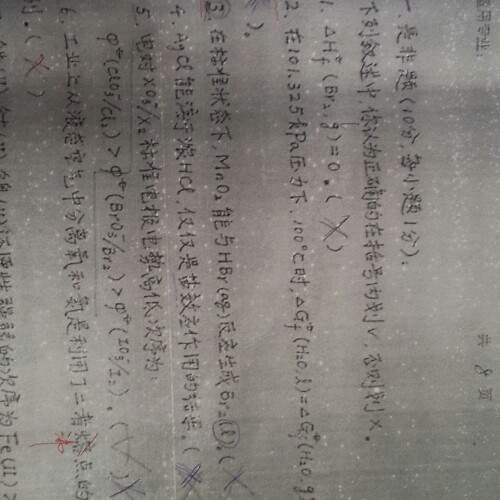 共 8 页
一、是非题(10分,每小题1分):
下列叙述中,你认为正确的在括号内划√,否则划×。
1. ΔHf°(Br₂, g)=0。(×)
2. 在101.325kPa压力下,100℃时,ΔGf°(H₂O, l)=ΔGf°(H₂O, g
)。
3. 在标准状态下,MnO₂能与HBr(aq)反应生成Br₂(l)。(
4. AgCl能溶于浓HCl,仅仅是盐效应作用的结果。(
5. 电对XO₃⁻/X₂标准电极电势高低次序为:
φ°(ClO₃⁻/Cl₂) > φ°(BrO₃⁻/Br₂) > φ°(IO₃⁻/I₂)。(√)×
6. 工业上从液态空气中分离氧和氮是利用了二者熔点的
沸
别。(×)
的次序为Fe(II) >